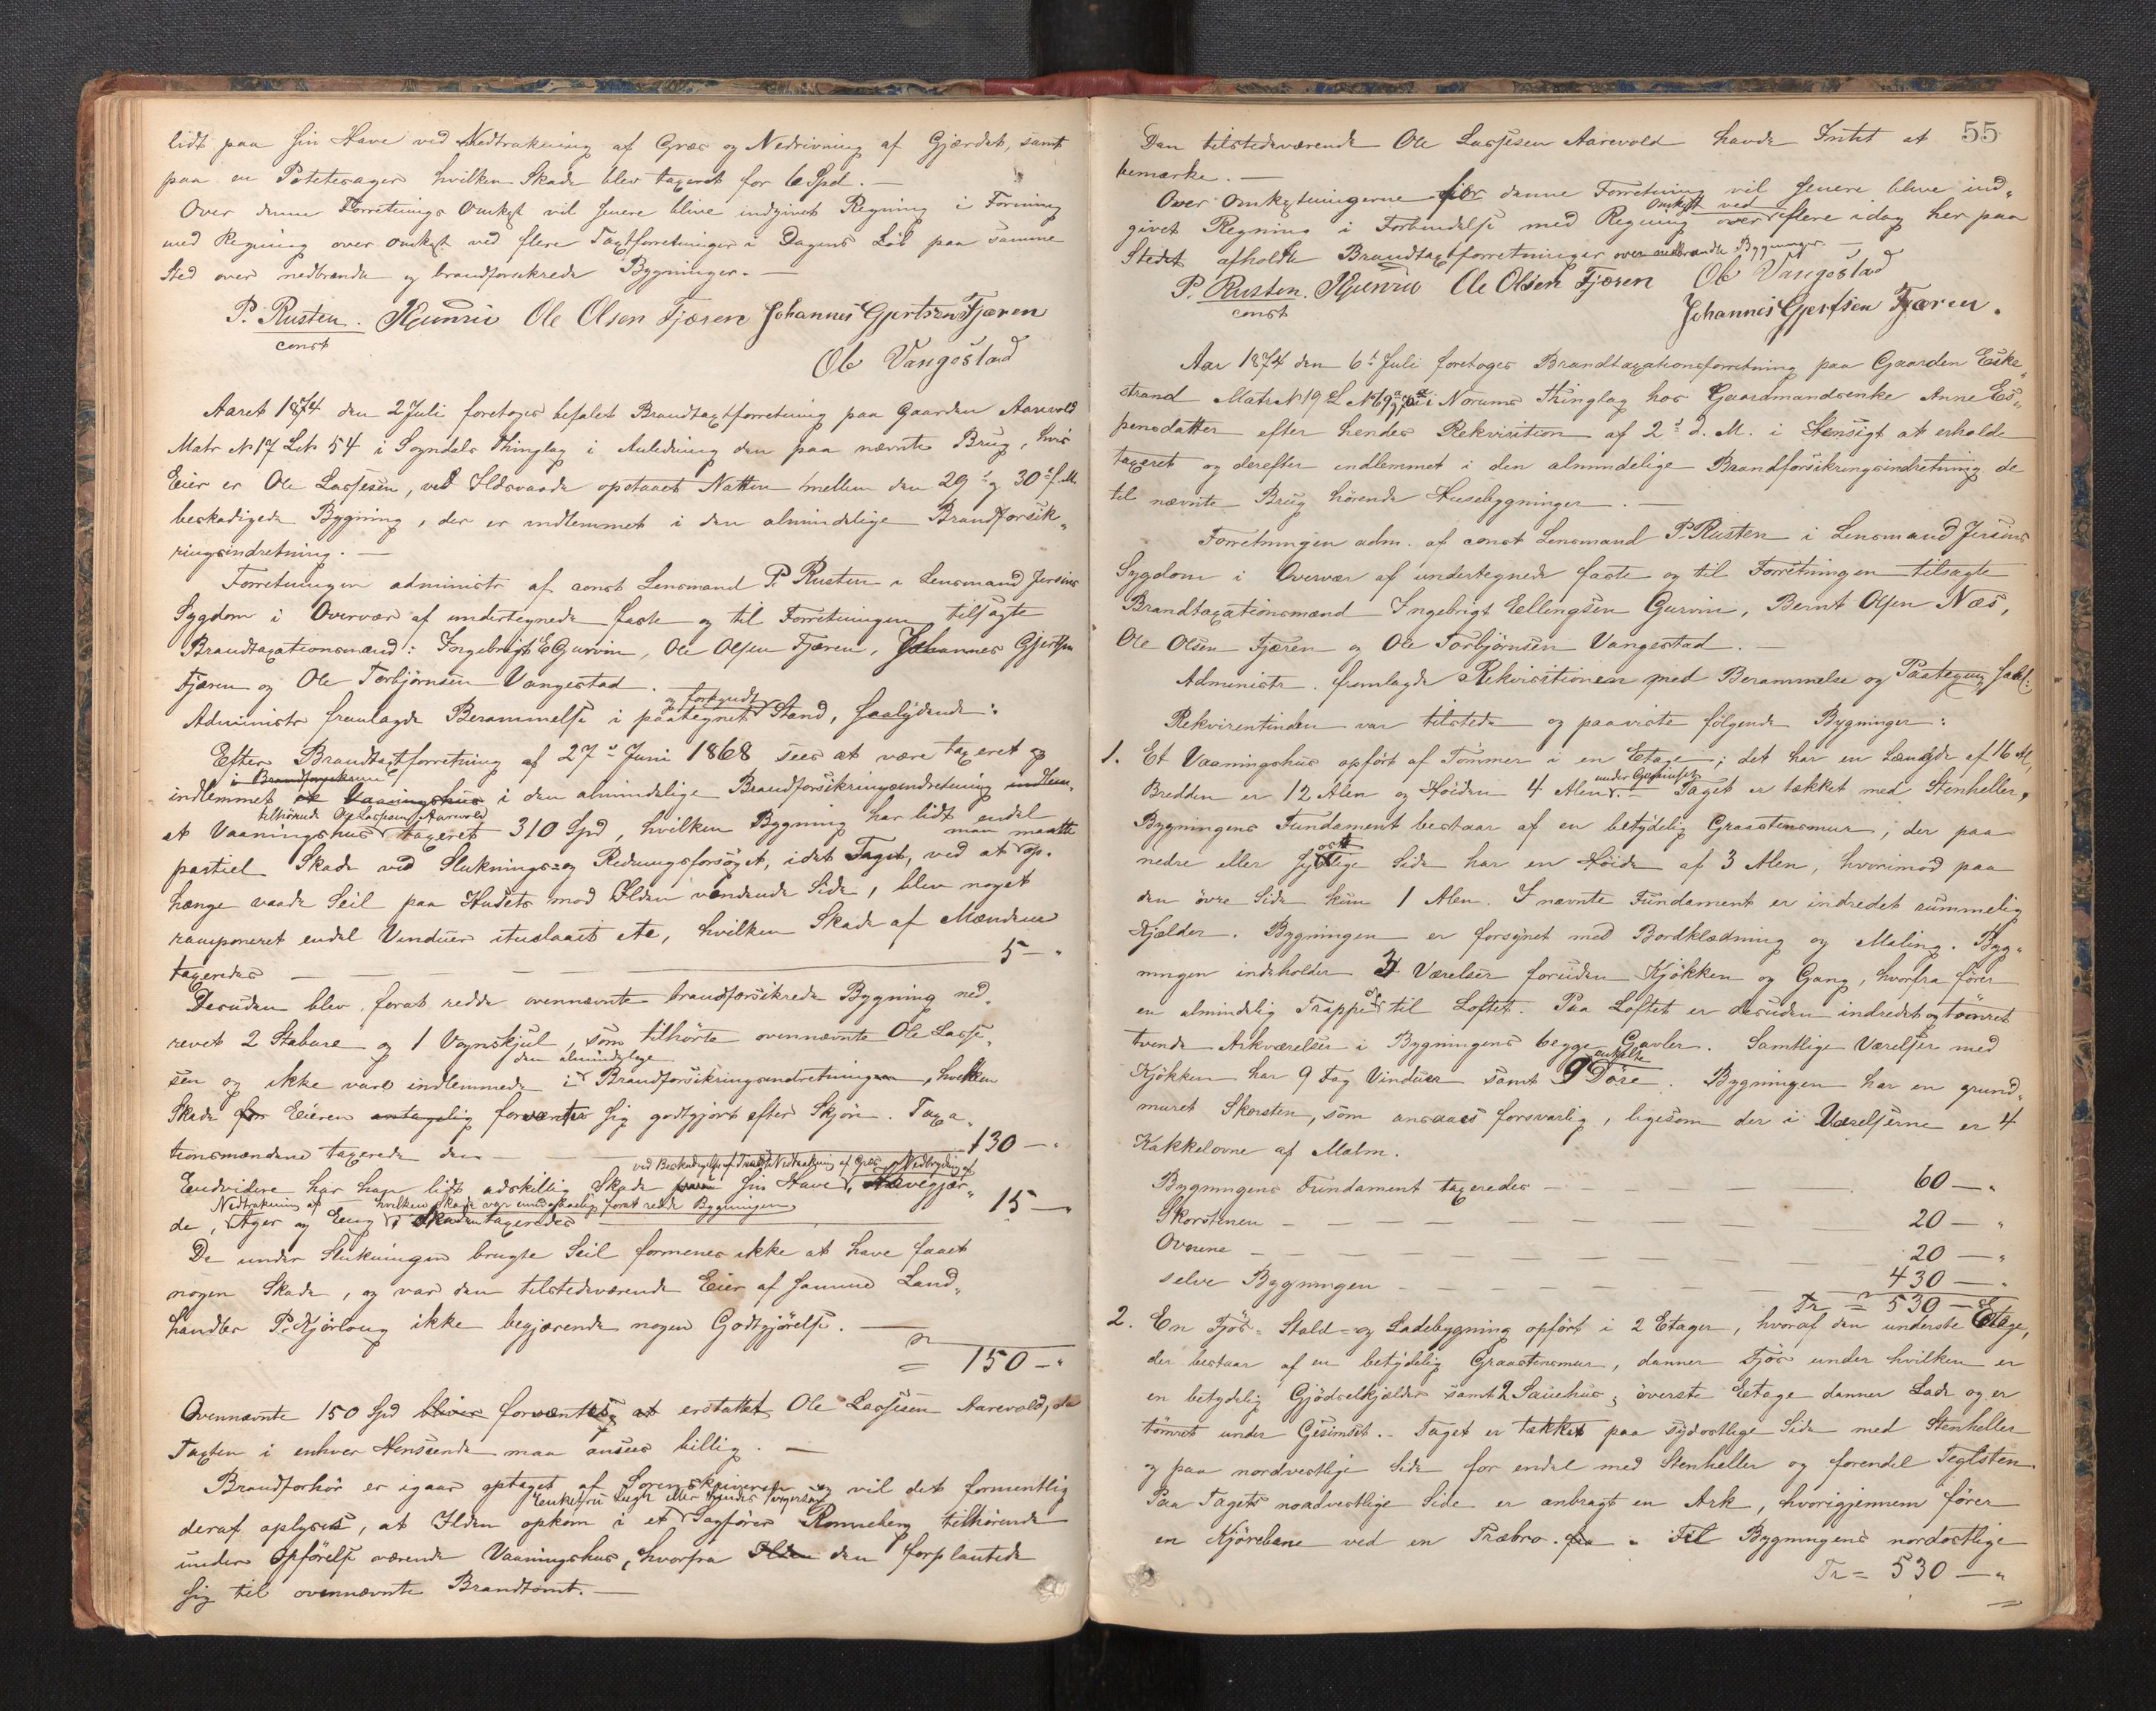 lidt paa sin Have ved Nedtrakning af Græs og Nedrivning af Gjærdet, samt
paa en Potetesager hvilken Skade blev taxeret for 6 Spd. —
Over denne Forretnings Omkost vil senere blive indgivet Regning i Forening
med Regning over omkost ved flere Taxtforretninger i Dagens Løb paa samme
Sted over nedbrændte og brandforsikrede Bygninger. —
P. Rusten. Ole Olsen Fjæren Johannes Gjertsen Fjæren
const
Ole Vangestad
Aaret 1874 den 2 Juli foretoges befalet Brandtaxtforretning paa Gaarden Aarevold
Matr No 17 Lb 54 i Sogndals Thinglag i Anledning den paa nævnte Brug, hvis
Eier er Ole Lassesen, ved Ildsvaade opstaaet Natten mellem den 29de og 30te f. M.
beskadigede Bygning, der er indlemmet i den almindelige Brandforsik-
ringsindretning. —
Forretningen administr af const Lensmand P Rusten i Lensmand Jersins
Sygdom i Overvær af undertegnede faste og til Forretningen tilsagte
Brandtaxationsmænd: Ingebrigt E Gurvin, Ole Olsen Fjæren, Johannes Gjertsen
Fjæren og Ole Torbjørnsen Vangestad.
og forkyndt
Administr fremlagde Berammelse i paategnet Stand, saalydende:
Efter Brandtaxtforretning af 27de Juni 1868 sees at være taxeret og
i Brandforsikring
indlemmet et Vaaningshus i den almindelige Brandforsikringsindretning indlem-
tilhørende Ole Lassesen Aarevold
et Vaaningshus taxeret 310 Spd, hvilken Bygning har lidt endel
man maatte
partiel Skade ved Sluknings- og Redningsforsøget, idet Taget, ved at op-
hænge vaade Seil paa Husets mod Ilden vendende Side, blev noget
ramponeret endel Vinduer ituslaaet etc, hvilken Skade af Mændene
taxeredes — — — 5 — "
Desuden blev, forat redde ovennævnte brandforsikrede Bygning ned-
revet 2 Stabure og 1 Vognskjul, som tilhørte ovennævnte Ole Lasse-
den almindelige
sen og ikke vare indlemmede i Brandforsikringsindretningen, hvilken
Skade for Eieren antagelig forventer sig godtgjort efter Skjøn. Taxa-
tionsmændene taxerede den — — 130 — "
ved Beskadigelse af Nedtrakning af Græs og Nedbrydning af
Endvidere har han lidt adskillig Skade paa sin Have, Havegjær-
Nedtrakning af hvilken Skade var uundgaaelig forat redde Bygningen
de, Ager og Eng, Skaden taxeredes — 15 — "
De under Slukningen brugte Seil formenes ikke at have faaet
nogen Skade, og var den tilstedeværende Eier af samme Land-
handler P. Kjørlaug ikke begjærende nogen Godtgjørelse. —
= 150 — "
Ovennævnte 150 Spd bliver forventes at erstattet Ole Lassesen Aarevold, da
Taxten i enhver Henseende maa ansees billig. —
Brandforhør er igaar optaget af Sorenskriveren og vil det formentlig
deraf oplyses, at Ilden opkom i et Sagfører Ronneberg tilhørende
under Opførelse værende Vaaningshus, hvorfra Ilden den forplantede
sig til ovennævnte Brandtomt. —
55
Den tilstedeværende Ole Lassesen Aarevold havde Intet at
bemærke. —
Over Omkostningerne for denne Forretning vil senere blive ind-
Omkost ved
givet Regning i Forbindelse med Regning over flere idag her paa
Stedet afholdte Brandtaxtforretninger over nedbrændte Bygninger. —
P. Rusten. Ole Olsen Fjæren Ole Vangestad
const
Johannes Gjertsen Fjæren.
Aar 1874 den 6te Juli foretoges Brandtaxationsforretning paa Gaarden Eske-
strand Matr No 19 L No 69a i Norums Thinglag hos Gaardmandsenke Anne Es-
pensdatter efter hendes Rekvisition af 2den d. M. i Hensigt at erholde
taxeret og derefter indlemmet i den almindelige Brandforsikringsindretning de
til nævnte Brug hørende Husebygninger. —
Forretningen adm. af const Lensmand P. Rusten i Lensmand Jersins
Sygdom i Overvær af undertegnede faste og til Forretningen tilsagte
Brandtaxationsmænd Ingebrigt Ellingsen Gurvin, Bernt Olsen Næs,
Ole Olsen Fjæren og Ole Torbjørnsen Vangestad. —
Administr. fremlagde Rekvisitionen med Berammelse og Paategning saal:
Rekvirentinden var tilstede og paaviste følgende Bygninger:
1. Et Vaaningshus opført af Tømmer i en Etage; det har en Længde af 16 Al,
under Gesimset
Bredden er 12 Alen og Høiden 4 Alen. — Taget er tækket med Stenheller,
Bygningens Fundament bestaar af en betydelig Graastensmur, der paa
ost
nedre eller sydlige Side har en Høide af 3 Alen, hvorimod paa
den øvre Side kun 1 Alen. I nævnte Fundament er indredet rummelig
Kjælder. Bygningen er forsynet med Bordklædning og Maling. Byg-
ningen indeholder 3 Værelser foruden Kjøkken og Gang, hvorfra fører
en almindelig Trappe til Loftet. Paa Loftet er desuden indredet og tømret
tvende Arkværelser i Bygningens begge Gavler. Samtlige Værelser med
enkelte
Kjøkken har 9 Fag Vinduer samt 9 Døre. Bygningen har en grund-
muret Skorsten, som ansaaes forsvarlig, ligesom der i Værelserne er 4
Kakkelovne af Malm.
Bygningens Fundament taxeredes — 60 — "
Skorstenen — — — — — — 20 — "
Ovnene — — — — — — 20 — "
selve Bygningen — — — — — 430 — "
Tr = 530 —
2. En Fjøs- Stald- og Ladebygning opført i 2 Etager, hvoraf den underste Etage,
der bestaar af en betydelig Graastensmur, danner Fjøs under hvilken er
en betydelig Gjødselkjælder samt 2 Sauehus; øverste Etage danner Lade og er
tømret under Gesimset. — Taget er tækket paa sydostlige Side med Stenheller
og paa nordvestlige Side for endel med Stenheller og forendel Teglsten.
Paa Tagets nordvestlige Side er anbragt en Ark, hvorigjennem fører
en Kjørebane ved en Træbro. fra. Til Bygningens nordostlige
Tr = 530 — "